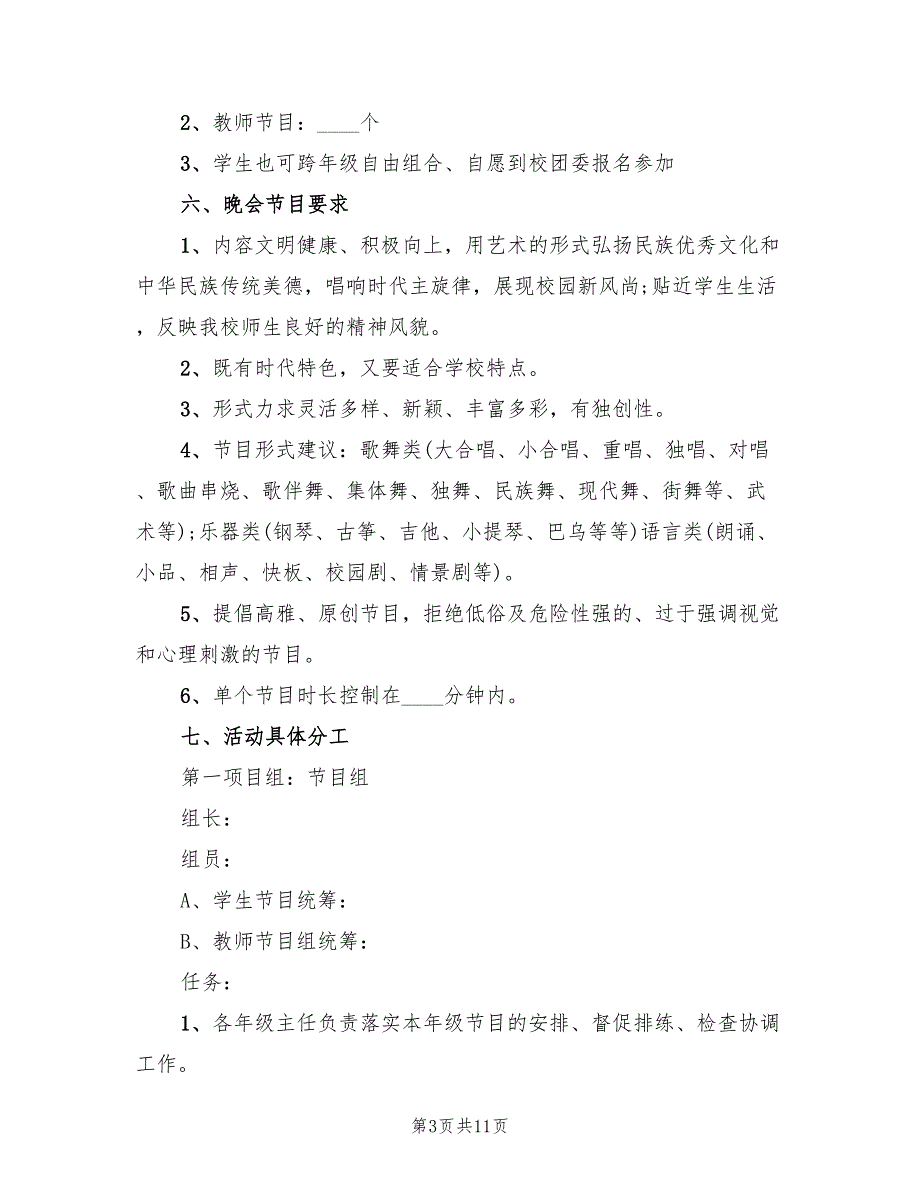 2、教师节目：____个
3、学生也可跨年级自由组合、自愿到校团委报名参加
六、晚会节目要求
1、内容文明健康、积极向上，用艺术的形式弘扬民族优秀文化和
中华民族传统美德，唱响时代主旋律，展现校园新风尚;贴近学生生活
，反映我校师生良好的精神风貌。
2、既有时代特色，又要适合学校特点。
3、形式力求灵活多样、新颖、丰富多彩，有独创性。
4、节目形式建议：歌舞类(大合唱、小合唱、重唱、独唱、对唱
、歌曲串烧、歌伴舞、集体舞、独舞、民族舞、现代舞、街舞等、武
术等);乐器类(钢琴、古筝、吉他、小提琴、巴乌等等)语言类(朗诵、
小品、相声、快板、校园剧、情景剧等)。
5、提倡高雅、原创节目，拒绝低俗及危险性强的、过于强调视觉
和心理刺激的节目。
6、单个节目时长控制在____分钟内。
七、活动具体分工
第一项目组：节目组
组长：
组员：
A、学生节目统筹：
B、教师节目组统筹：
任务：
1、各年级主任负责落实本年级节目的安排、督促排练、检查协调
工作。
第3页共11页